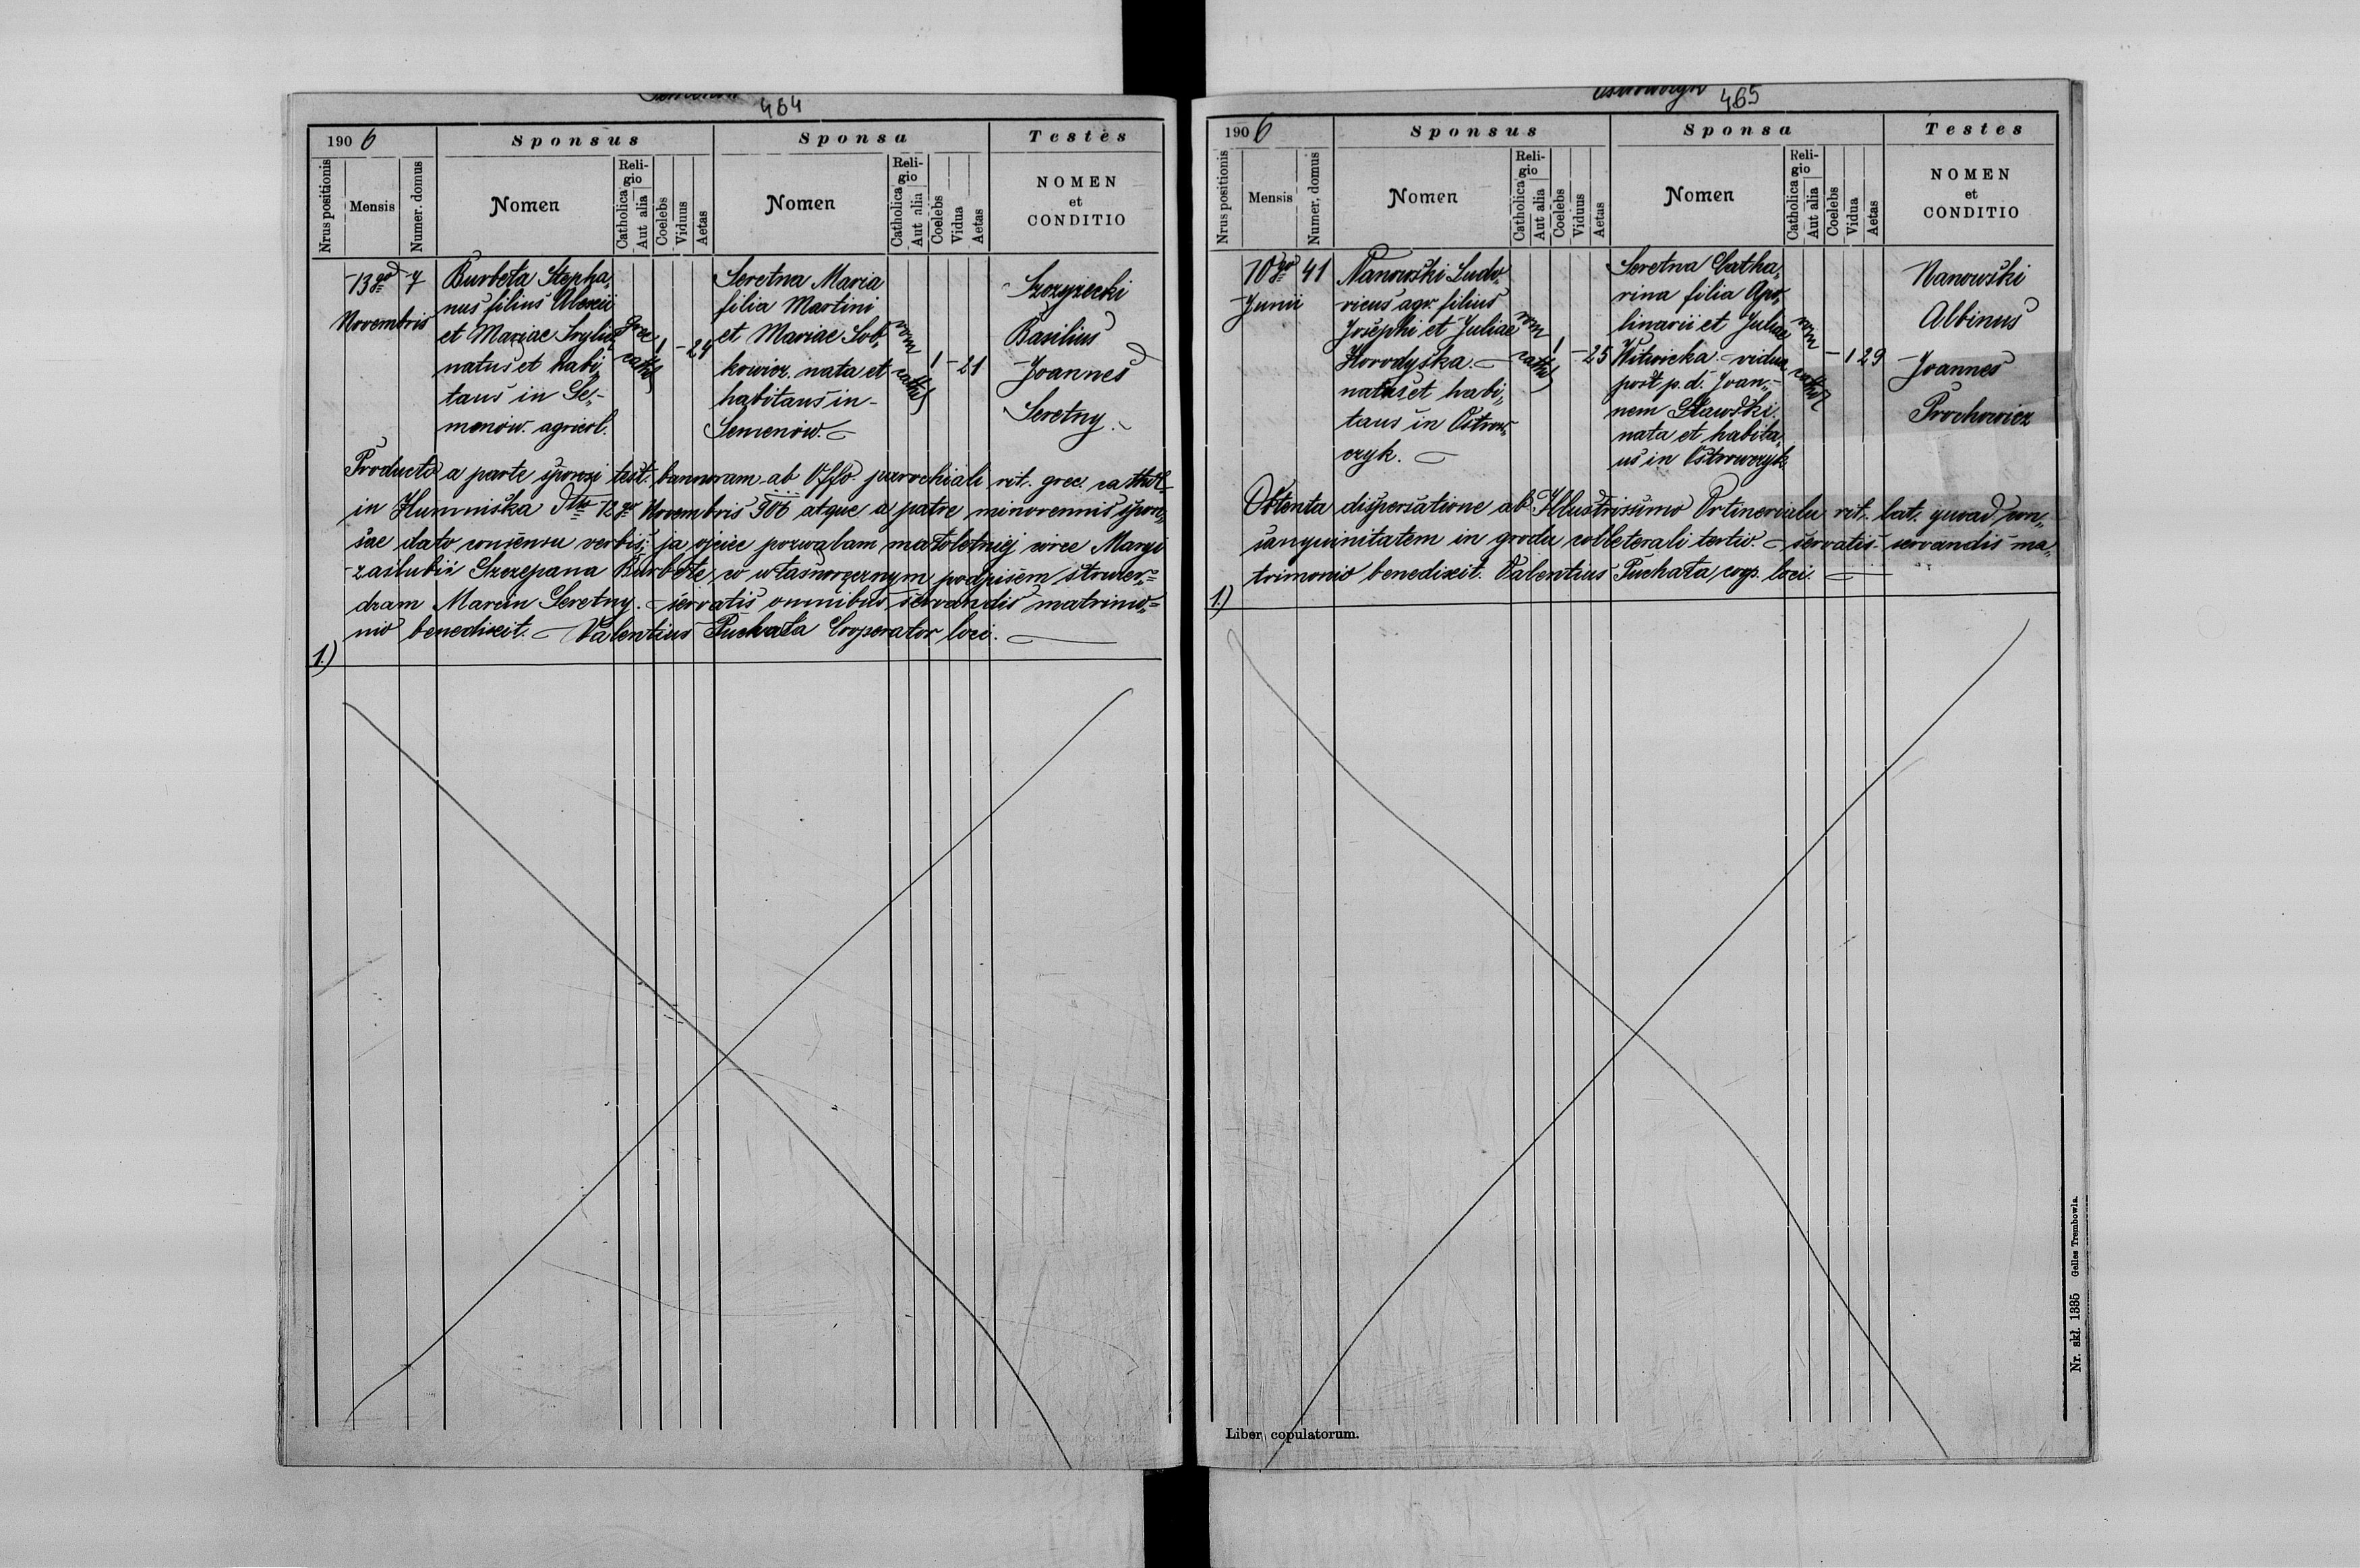 464
1906
Sponsus
Sponsa
Testes
Nrus positionis
Mensis
Numer. domus
Nomen
Religio
Catholica
Aut alia
Coelebs
Viduus
Aetas
Nomen
Religio
Catholica
Aut alia
Coelebs
Vidua
Aetas
NOMEN
et
CONDITIO
1.)
13go
Novembris
7
Burbeta Stepha„
nus filius Alexii
et Mariae
natus et habi„
tans in Se„-
menów. agricol.
grec
cathol
1
-
24
Seretna Maria
filia Martini
et Mariae Sob„
kowicz. nata et
habitans in -
Semenów.
rom
cathol
1
-
21
Basilius
Joannes
Seretny.
Producto a parte sponsi test. bannoram ab Offo parochiali rit. grec. cathol-
in Humniska Dtto 12go Novembris 906 atque a patre minorennis spon„
sae dato consensu verbis; ja ojciec pozwalam małoletniej córce Maryi
zaślubić Szczepana Burbetę, co własnoręcznym podpisem stwier„=
dzam Marcin Seretny. - servatis omnibus servandis matrimo„=
nio benedixit. - Valentius Puchała Cooperator loci.
Ostrowczyk
465
1906
Sponsus
Sponsa
Testes
Nrus positionis
Mensis
Numer. domus
Nomen
Religio
Catholica
Aut alia
Coelebs
Viduus
Aetas
Nomen
Religio
Catholica
Aut alia
Coelebs
Vidua
Aetas
NOMEN
et
CONDITIO
1.)
10go
Junii
41
Nanowski Ludo„
vicus agr. filius
Josephi et Juliae
Horodyska. -
natus et habi„
tans in Ostrow„
czyk.
rom
cathol
1
-
25
Seretna Catha„
rina filia Apo„
linarii et Juliae
Witwicka - vidua
post p. d. Joan„-
nem Sławski.
nata et habita„
ns in Ostrowczyk
rom
cathol
-
1
29
Nanowski
Albinus
Joannes
Prochowicz
Obtenta dispensatione ab Illustrissimo Ortinerialu rit. lat. quoad con„
sanguinitatem in gradu colleterali tertio. - servatis servandis ma„
trimonio benedixit. Valentius Puchała coop. loci.
Liber copulatorum.
Nr. skł. 1335 Gelles Trembowla.